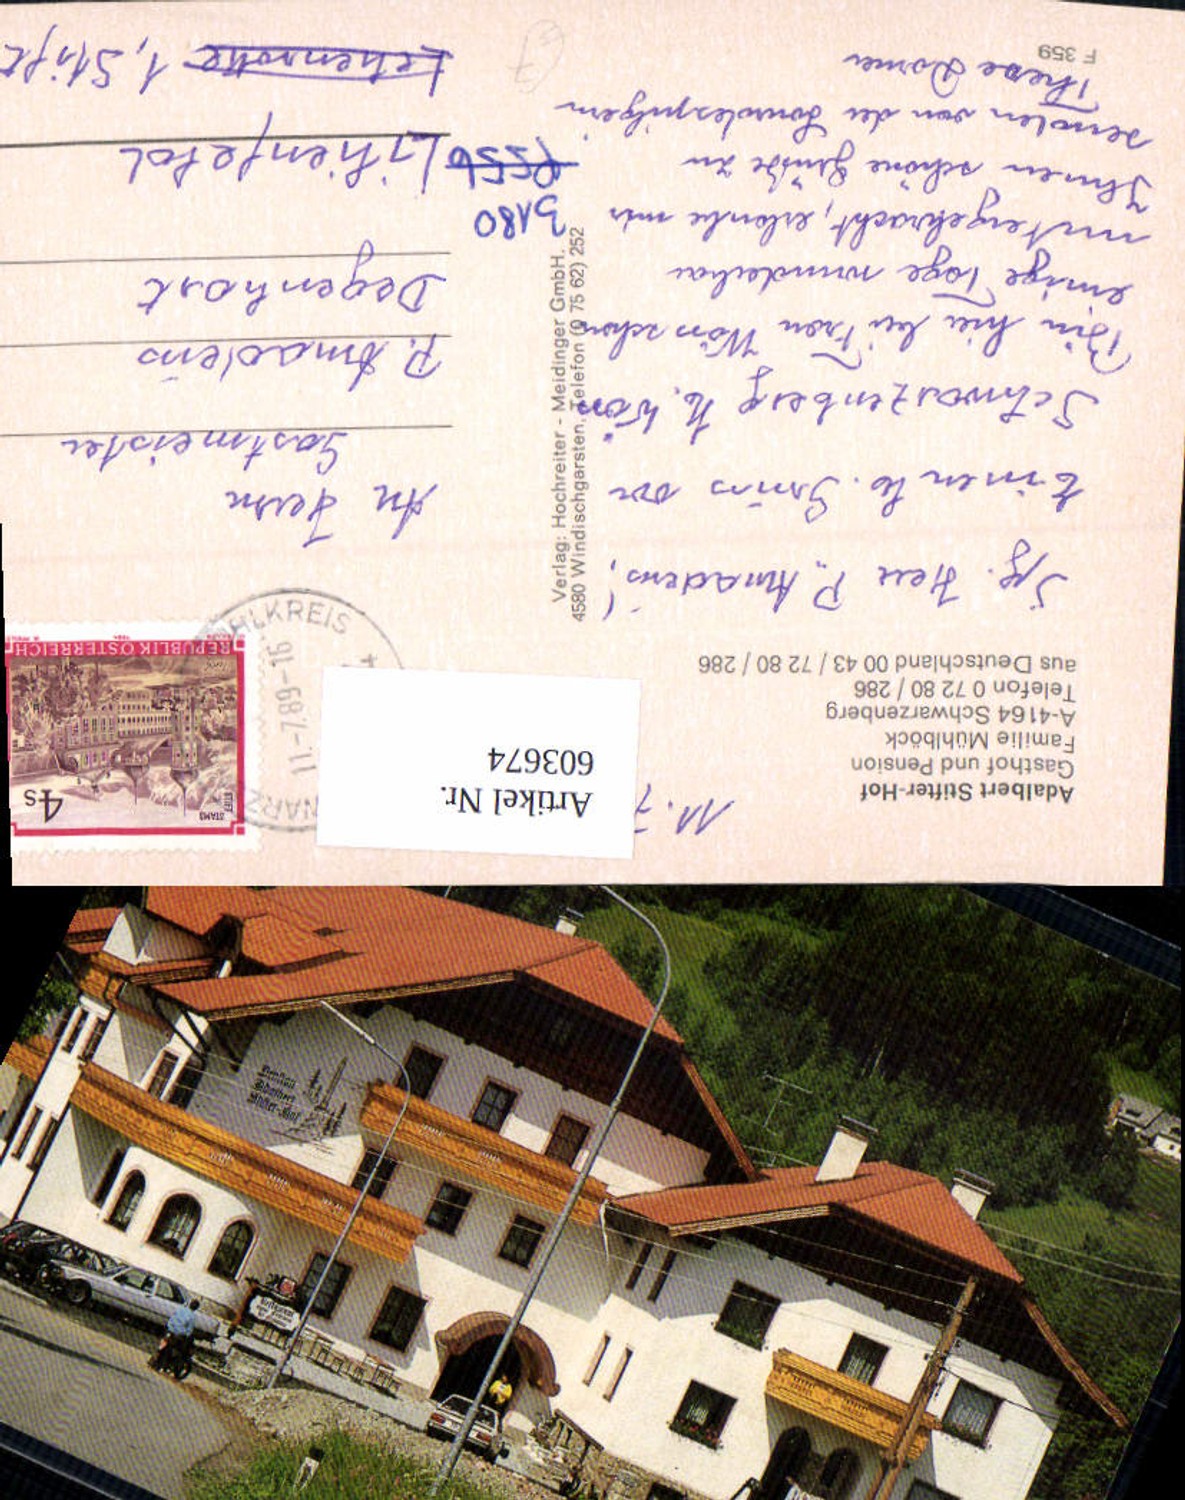 Adalbert Stifter-Hof
Gasthof und Pension
Familie Mühlböck
A-4164 Schwarzenberg
Telefon 0 72 80 / 286
aus Deutschland 00 43 / 72 80 / 286
11.7
Artikel Nr.
603674
Sg. Herr P. Amadeus!
Einen lb. Gruss aus
Schwarzenberg
Bin hier bei Frau schon
einige Tage wunderbar
untergebracht, erlaube mir
Ihnen schöne Grüße zu
senden von der
F 359
Verlag: Hochreiter - Meidinger GmbH.
4580 Windischgarsten, Telefon (0 75 62) 252
REPUBLIK ÖSTERREICH
STIFT
STAMS
4s
HLKREIS
11.-7.89-16
An Herrn
Gastmeister
P. Amadeus
Degenhart
3180
Lilienfeld
1, Stift
7
Pension
Adalbert
Stifter-Hof